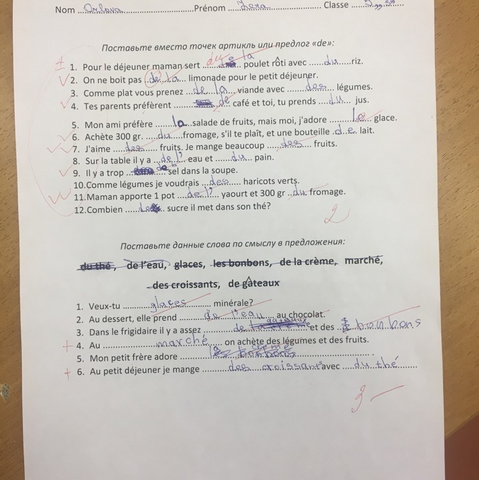 Nom Orlova Prénom Classe
Поставьте вместо точек артикль или предлог «de»:
1. Pour le déjeuner maman sert du de la poulet rôti avec ...du...riz.
2. On ne boit pas de la limonade pour le petit déjeuner.
3. Comme plat vous prenez ...de la... viande avec ...des... légumes.
4. Tes parents préfèrent de café et toi, tu prends ...du... jus.
5. Mon ami préfère ...la... salade de fruits, mais moi, j'adore ...Le... glace.
6. Achète 300 gr. ...du...fromage, s'il te plaît, et une bouteille ..de.. lait.
7. J'aime ...des... fruits. Je mange beaucoup ...des... fruits.
8. Sur la table il y a ..de l'.. eau et ...du... pain.
9. Il y a trop sel dans la soupe.
10.Comme légumes je voudrais ...des... haricots verts.
11.Maman apporte 1 pot ...de l'... yaourt et 300 gr ..du fromage.
12.Combien sucre il met dans son thé?
2
Поставьте данные слова по смыслу в предложения:
du thé, de l'eau, glaces, les bonbons, de la crème, marché,
des croissants, de gâteaux
1. Veux-tu ...glaces... minérale?
2. Au dessert, elle prend ...de l'eau... au chocolat.
3. Dans le frigidaire il y a assez et des bonbons
+ 4. Au ...marché... on achète des légumes et des fruits.
5. Mon petit frère adore
+ 6. Au petit déjeuner je mange ...des croissants avec ...du thé...
3 –